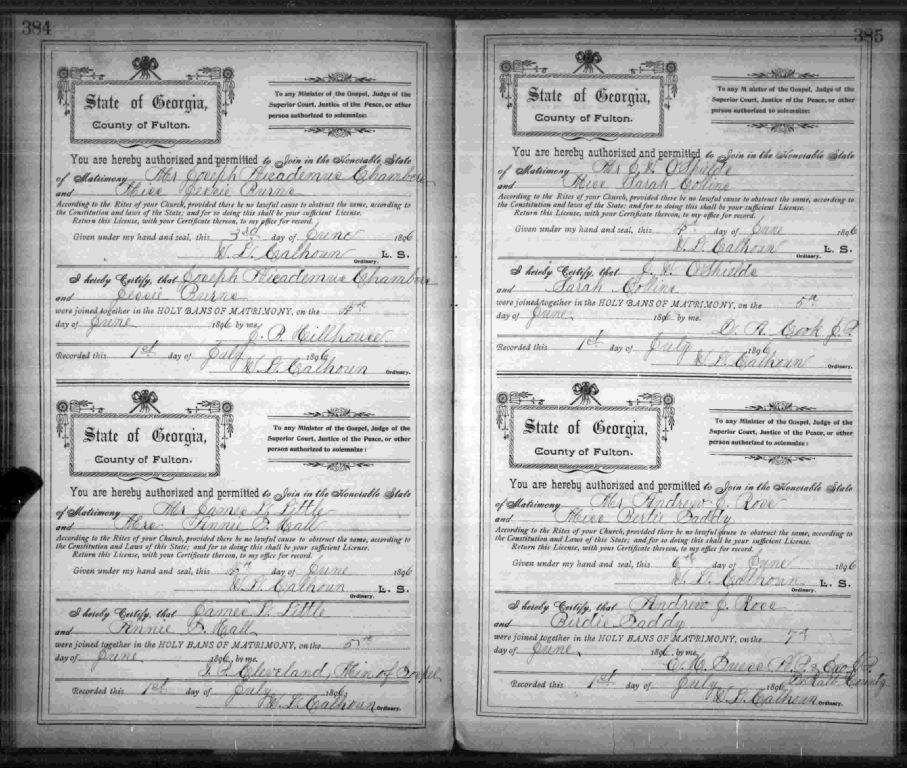 384
State of Georgia,
County of Fulton.
To any Minister of the Gospel, Judge of the
Superior Court, Justice of the Peace, or other
person authorized to solemnize:
You are hereby authorized and permitted to Join in the Honorable State
of Matrimony Mr Joseph Chambers
and Miss Burns
According to the Rites of your Church, provided there be no lawful cause to obstruct the same, according to
the Constitution and laws of the State; and for so doing this shall be your sufficient License.
Return this License, with your Certificate thereon, to my office for record.
Given under my hand and seal, this 3rd day of June 1896
W. L. Calhoun L. S.
Ordinary.
I hereby Certify, that Joseph Chambers
and Burns
were joined together in the HOLY BANS OF MATRIMONY, on the 4th
day of June 1896 by me,
J. P.
Recorded this 1st day of July 1896
W. L. Calhoun Ordinary.
State of Georgia,
County of Fulton.
To any Minister of the Gospel, Judge of the
Superior Court, Justice of the Peace, or other
person authorized to solemnize:
You are hereby authorized and permitted to Join in the Honorable State
of Matrimony Mr James Little
and Hall
According to the Rites of your Church, provided there be no lawful cause to obstruct the same, according to
the Constitution and Laws of this State; and for so doing this shall be your sufficient License.
Return this License, with your Certificate thereon, to my office for record.
Given under my hand and seal, this day of June 1896
W. L. Calhoun L. S.
Ordinary.
I hereby Certify, that James Little
and Hall
were joined together in the HOLY BANS OF MATRIMONY, on the 5th
day of June 1896 by me,
Cleveland, Min of Gospel
Recorded this 1st day of July 1896
W. L. Calhoun Ordinary.
385
State of Georgia,
County of Fulton.
To any Minister of the Gospel, Judge of the
Superior Court, Justice of the Peace, or other
person authorized to solemnize:
You are hereby authorized and permitted to Join in the Honorable State
of Matrimony Mr J. W. OShields
and Miss Sarah Coline
According to the Rites of your Church, provided there be no lawful cause to obstruct the same, according to
the Constitution and laws of this State; and for so doing this shall be your sufficient License.
Return this License, with your Certificate thereon, to my office for record.
Given under my hand and seal, this day of June 1896
W. L. Calhoun L. S.
Ordinary.
I hereby Certify, that J. W. OShields
and Sarah Coline
were joined together in the HOLY BANS OF MATRIMONY, on the 5th
day of June 1896 by me,
D. A. Cook J.P.
Recorded this 1st day of July 1896
W. L. Calhoun Ordinary.
State of Georgia,
County of Fulton.
To any Minister of the Gospel, Judge of the
Superior Court, Justice of the Peace, or other
person authorized to solemnize:
You are hereby authorized and permitted to Join in the Honorable State
of Matrimony Mr Andrew J. Rose
and Miss Gaddy
According to the Rites of your Church, provided there be no lawful cause to obstruct the same, according to
the Constitution and Laws of this State; and for so doing this shall be your sufficient License.
Return this License, with your Certificate thereon, to my office for record.
Given under my hand and seal, this 6th day of June 1896
W. L. Calhoun L. S.
Ordinary.
I hereby Certify, that Andrew J. Rose
and Birdie Gaddy
were joined together in the HOLY BANS OF MATRIMONY, on the 7th
day of June 1896 by me,
N.P. & Exo J.P.
DeKalb County
Recorded this 1st day of July 1896
W. L. Calhoun Ordinary.